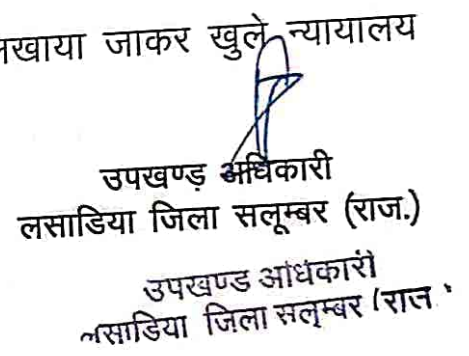 खाया जाकर खुले न्यायालय
उपखण्ड़ अधिकारी
लसाडिया जिला सलूम्बर (राज.)
उपखण्ड अधिकारी
लसाडिया जिला सलूम्बर (राज